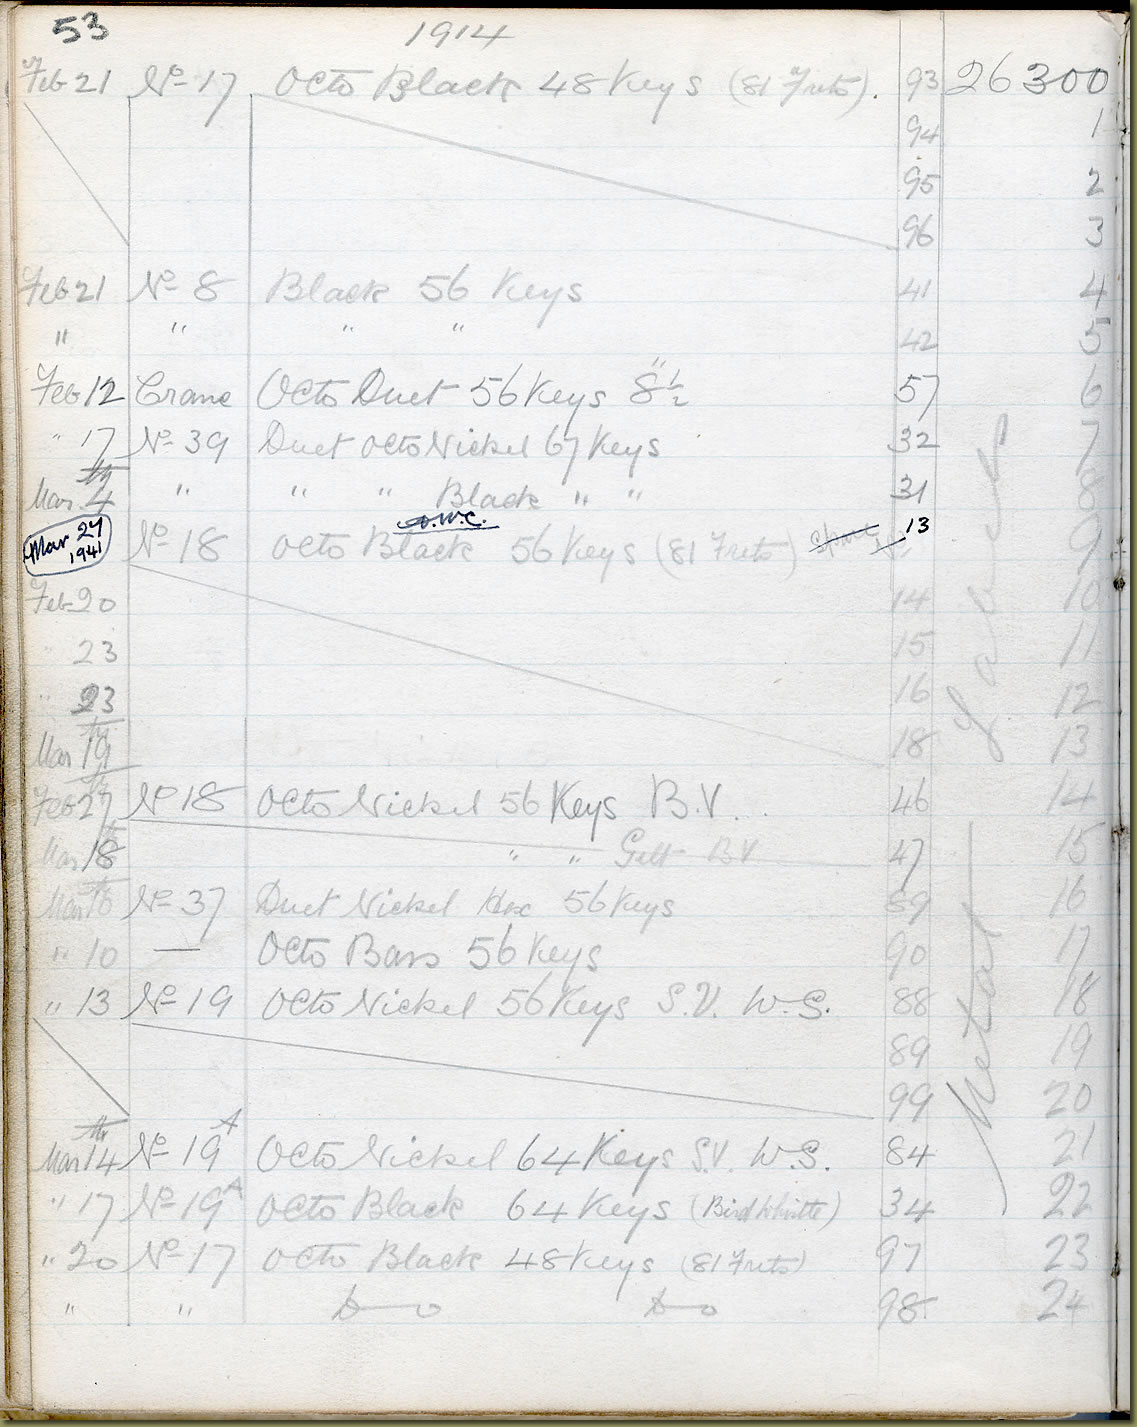 53 1914
Feb 21 No 17 Octo Black 48 Keys (81 Frets). 93 26300
94 1
95 2
96 3
Feb 21 No 8 Black 56 Keys 41 4
" " " " 42 5
Feb 12 Crane Octo Duet 56 Keys 8½" 57 6
" 17th No 39 Duet Octo Nickel 67 Keys 32 7
Mar. 4 " " " Black " " 31 8
O.W.C.
Mar 27 1941 No 18 Octo Black 56 Keys (81 Frets) 13 9
Feb 20 14 10
" 23 15 11
" 23 16 12
Mar 19th 18 13
Feb 27th No 18 Octo Nickel 56 Keys B.V. 46 14
Mar 18th " " Gilt BV 47 15
Mar 16 No 37 Duet Nickel Hex 56 Keys 89 16
" 10 — Octo Bass 56 Keys 90 17
" 13 No 19 Octo Nickel 56 Keys S.V. W.S. 88 18
89 19
99 20
Mar 14th No 19A Octo Nickel 64 Keys S.V. W.S. 84 21
" 17 No 19A Octo Black 64 Keys (Bird Whistle) 34 22
" 20 No 17 Octo Black 48 Keys (81 Frets) 97 23
" " Do Do 98 24
Metal